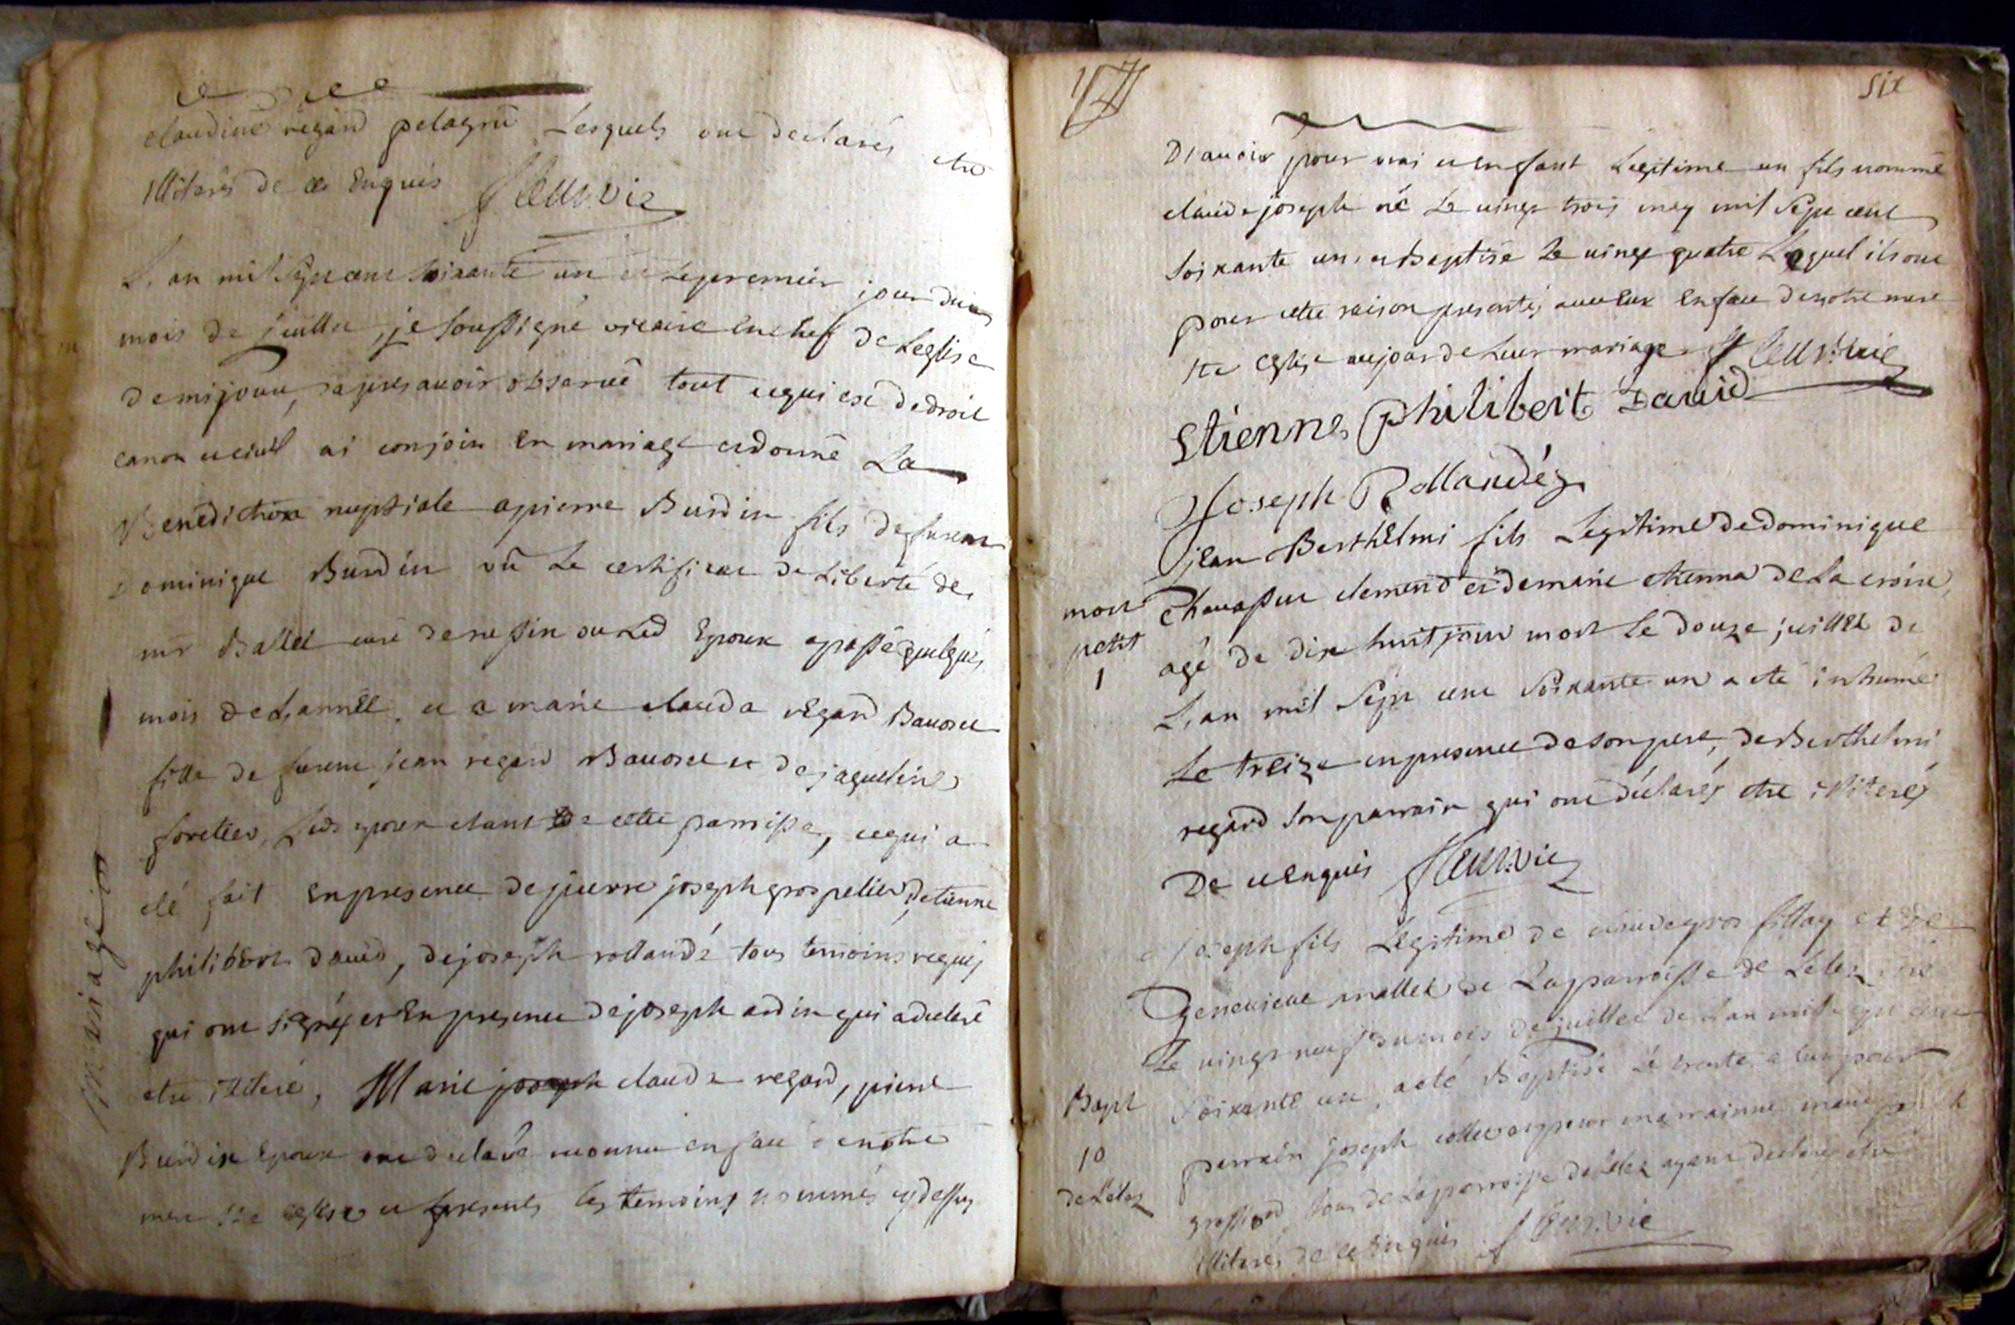 claudine regard pelagru Lesquels ont declarés etre
illiterés de ce Enquis fleur.vic
L'an mil sept cent soixante un et le premier jour du
mois de juillet, je soussigné vicaire en chef de Leglise
de mijoux, apres avoir observé tout ce qui est de droit
canon et civil ai conjoin en mariage et donné La
Benediction nuptiale a pierre Burdin fils de furent
Dominique Burdin vû Le certificat de Liberté de
mr Ballet curé de ou Led Epoux a passé quelques
mois de L'année, et a marie clauda regard Bavoset
fille de furent jean regard Bavoset et de jaqueline
foretier, Lesd epoux etant de cette parroisse, ce qui a
eté fait en presence de pierre joseph grospelier, detienne
philibert david, de joseph rollandé tous temoins requis
qui ont signés et en presence de joseph ardin qui a declaré
etre illiteré, Marie joseph clauda regard, pierre
Burdin Epoux ont declaré reconnu en face de notre
mere Ste eglise et presents les temoins nommés cy dessus
mariage
six
D'avoir pour vrai et enfant Legitime un fils nommé
claude joseph né Le vingt trois may mil sept cent
soixante un, et Baptisé Le vingt quatre Lequel ils ont
pour cette raison presenté avec Eux en face de notre mere
Ste eglise au jour de Leur mariage fleur.vic
Etienne philibert David
Joseph Rollandéz
jean Berthelmi fils Legitime de dominique
chavassu clement et de marie etienna de La croix,
mort
petit
1
agé de dix huit jour mort le douze juillet de
L'an mil sept cent soixante un a eté inhumé
Le treize en presence de son pere, de Berthelmi
regard son parrain qui ont déclarés etre illiterés
De ce Enquis fleur.vic
joseph fils Légitime de claude gros fillay et de
genevieve mallet de La parroisse de Lelex né
Le vingt neuf du mois de juillet de L'an mil sept cent
Bapt
10
de Lelex
soixante un, a eté Baptisé Le trente a eu pour
parrain joseph et pour marrainne marie
grossiord tous de La parroisse de Lelex ayant declarés etre
illiterés de ce Enquis fleur.vic